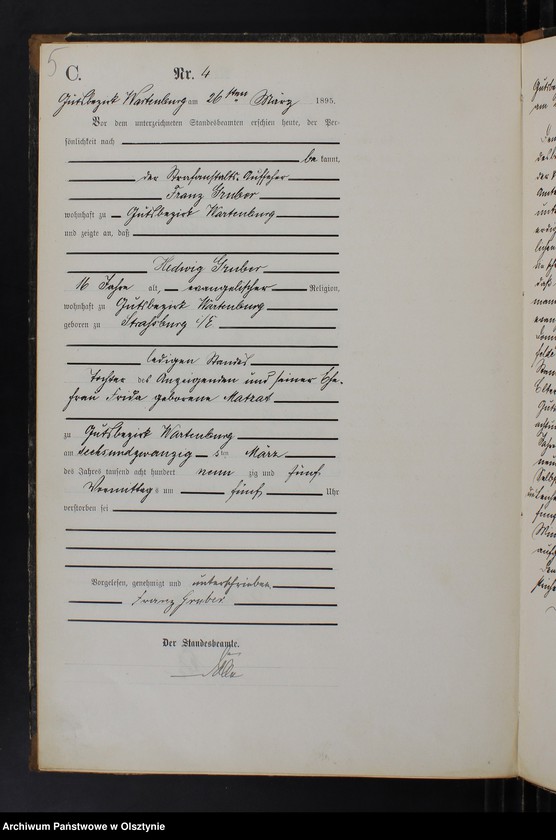 5
C.
Nr. 4
Gutsbezirk Wartenburg am 26 ten März 1895.
Vor dem unterzeichneten Standesbeamten erschien heute, der Per-
sönlichkeit nach
be kannt,
der Strafanstalts-Aufseher
Franz Gruber
wohnhaft zu Gutsbezirk Wartenburg
und zeigte an, daß
Hedwig Gruber
16 Jahre alt, evangelischer Religion,
wohnhaft zu Gutsbezirk Wartenburg
geboren zu Strassburg i/E
ledigen Standes
Tochter des Anzeigenden und seiner Ehe-
frau Frida geborene Matzat
zu Gutsbezirk Wartenburg
am sechsundzwanzig sten März
des Jahres tausend acht hundert neun zig und fünf
Vormittags um fünf Uhr
verstorben sei
Vorgelesen, genehmigt und unterschrieben
Franz Gruber
Der Standesbeamte.
Archiwum Państwowe w Olsztynie